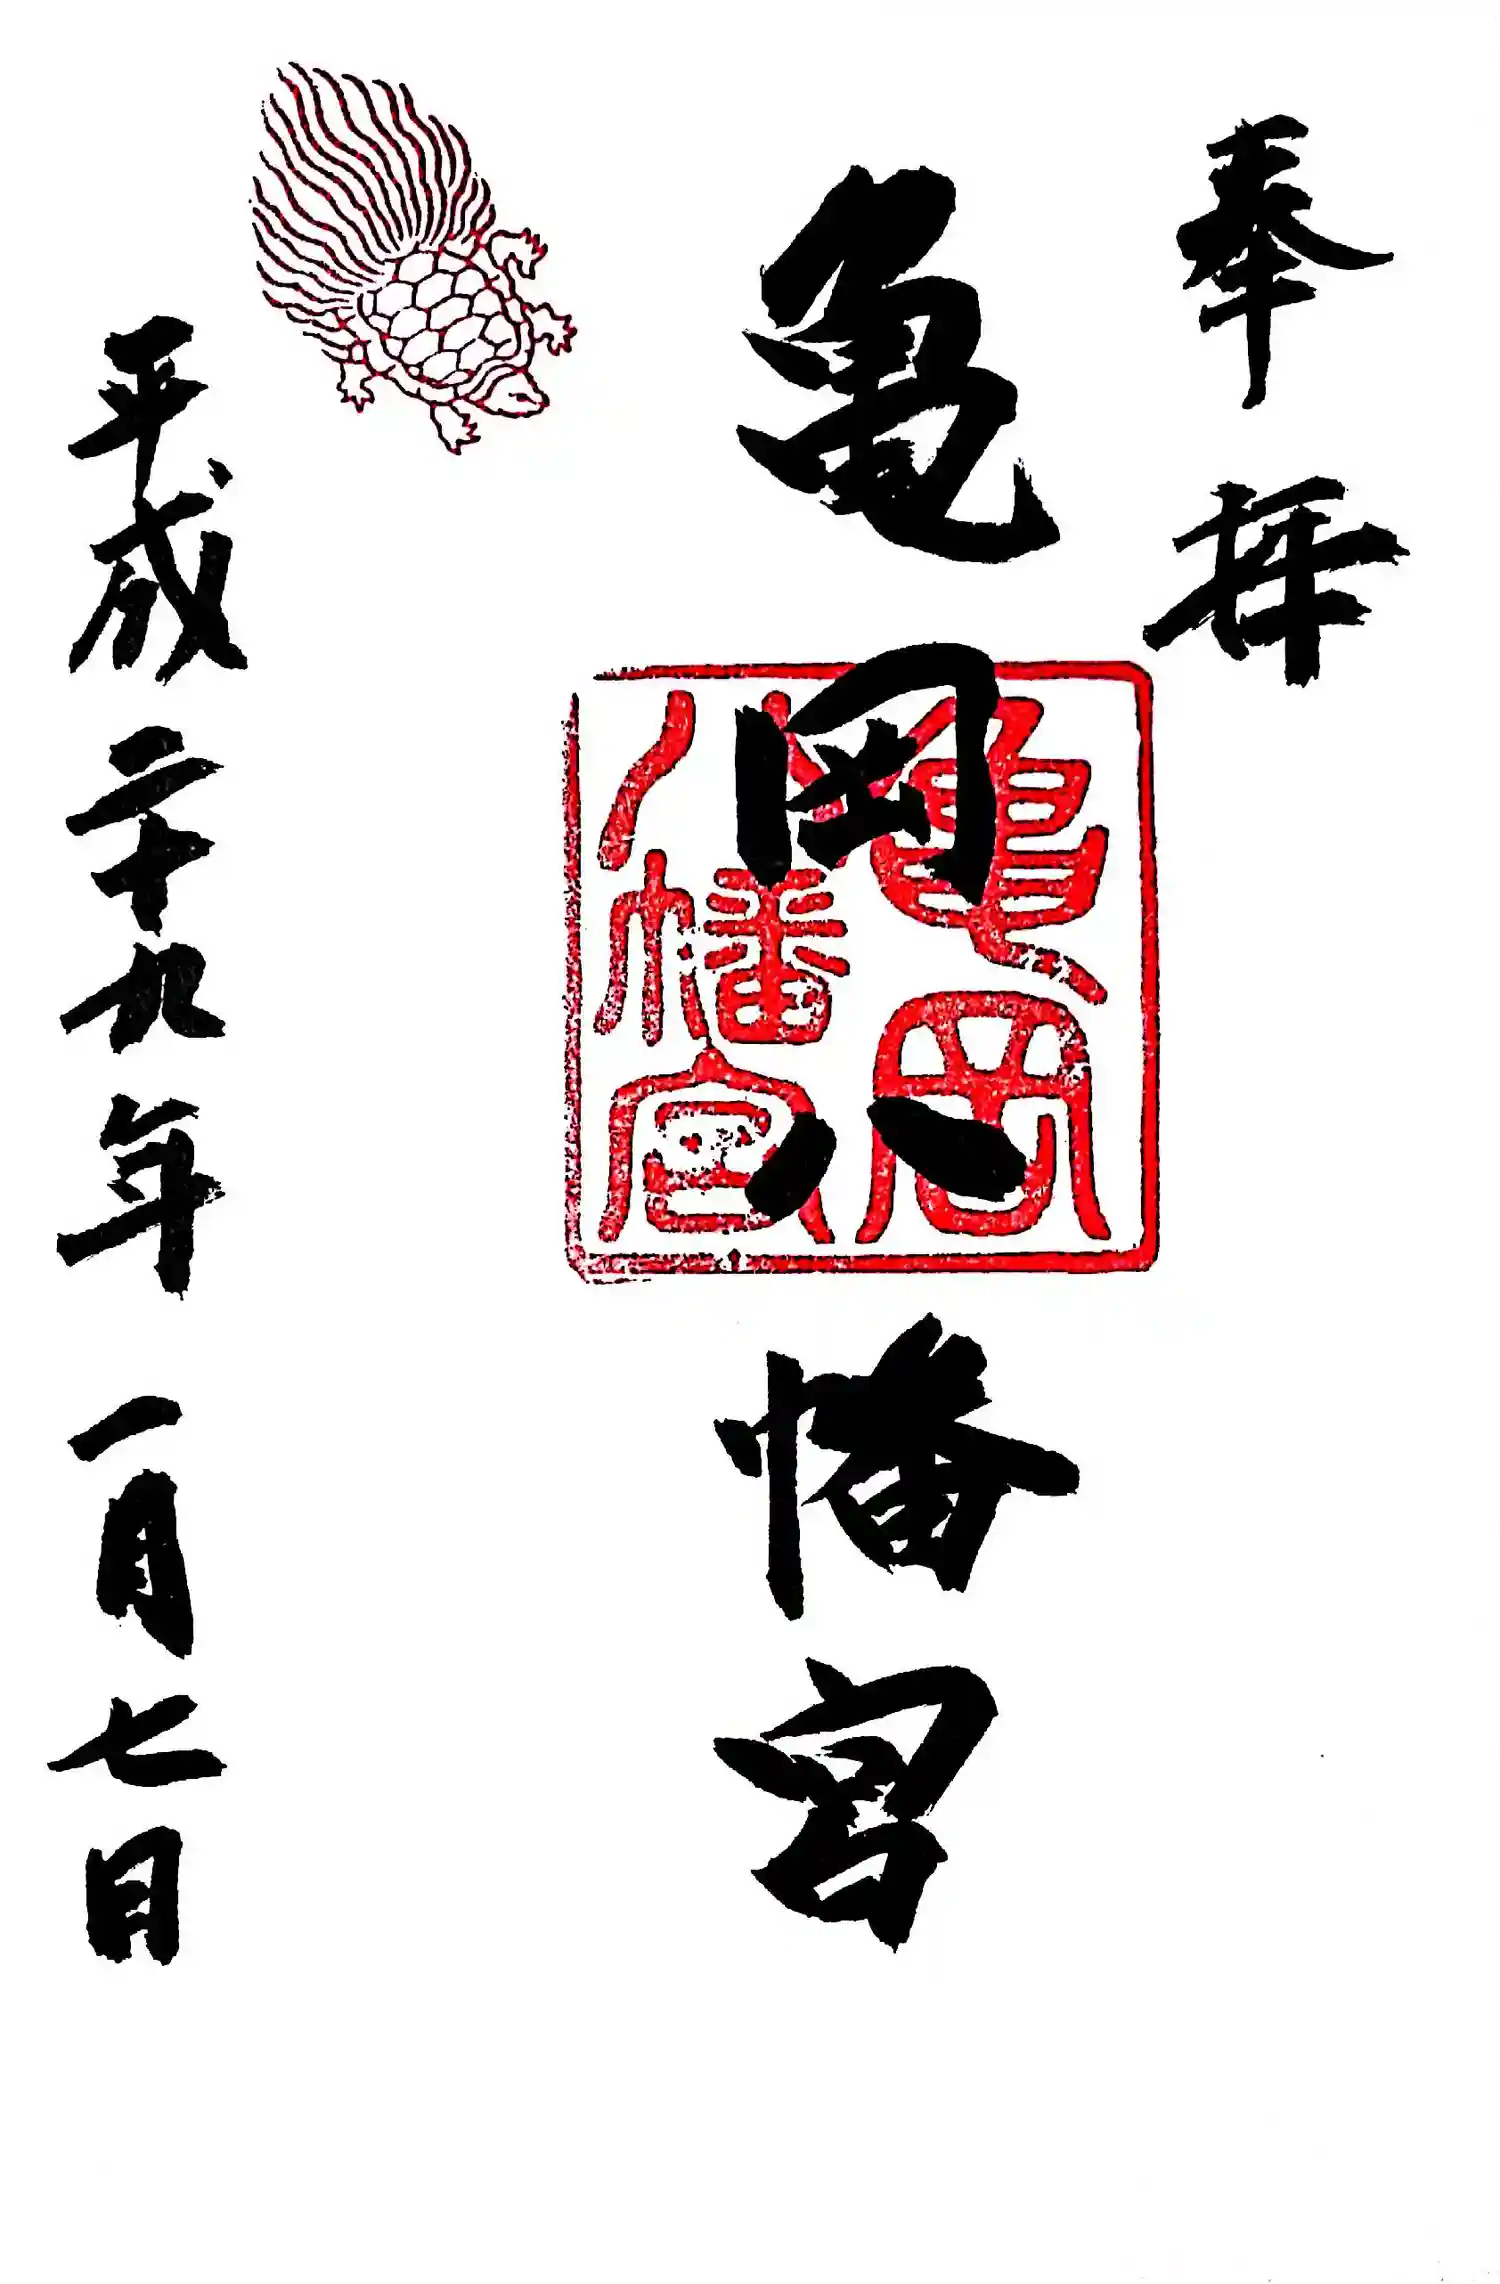 奉拝
亀岡八幡宮
亀岡
八幡宮
平成二十九年一月七日